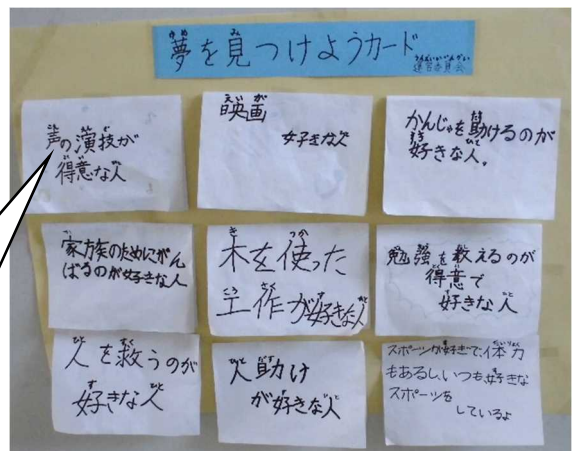 夢を見つけようカード
運営委員会
声の演技が
得意な人
映画
好きな人
かんじゃを助けるのが
好きな人。
家族のためにがん
ばるのが好きな人
木を使った
工作が好きな人
勉強を教えるのが
得意で
好きな人
人を救うのが
好きな人
人助け
が好きな人
スポーツが好きで、体力
もあるし、いつも好きな
スポーツを
しているよ